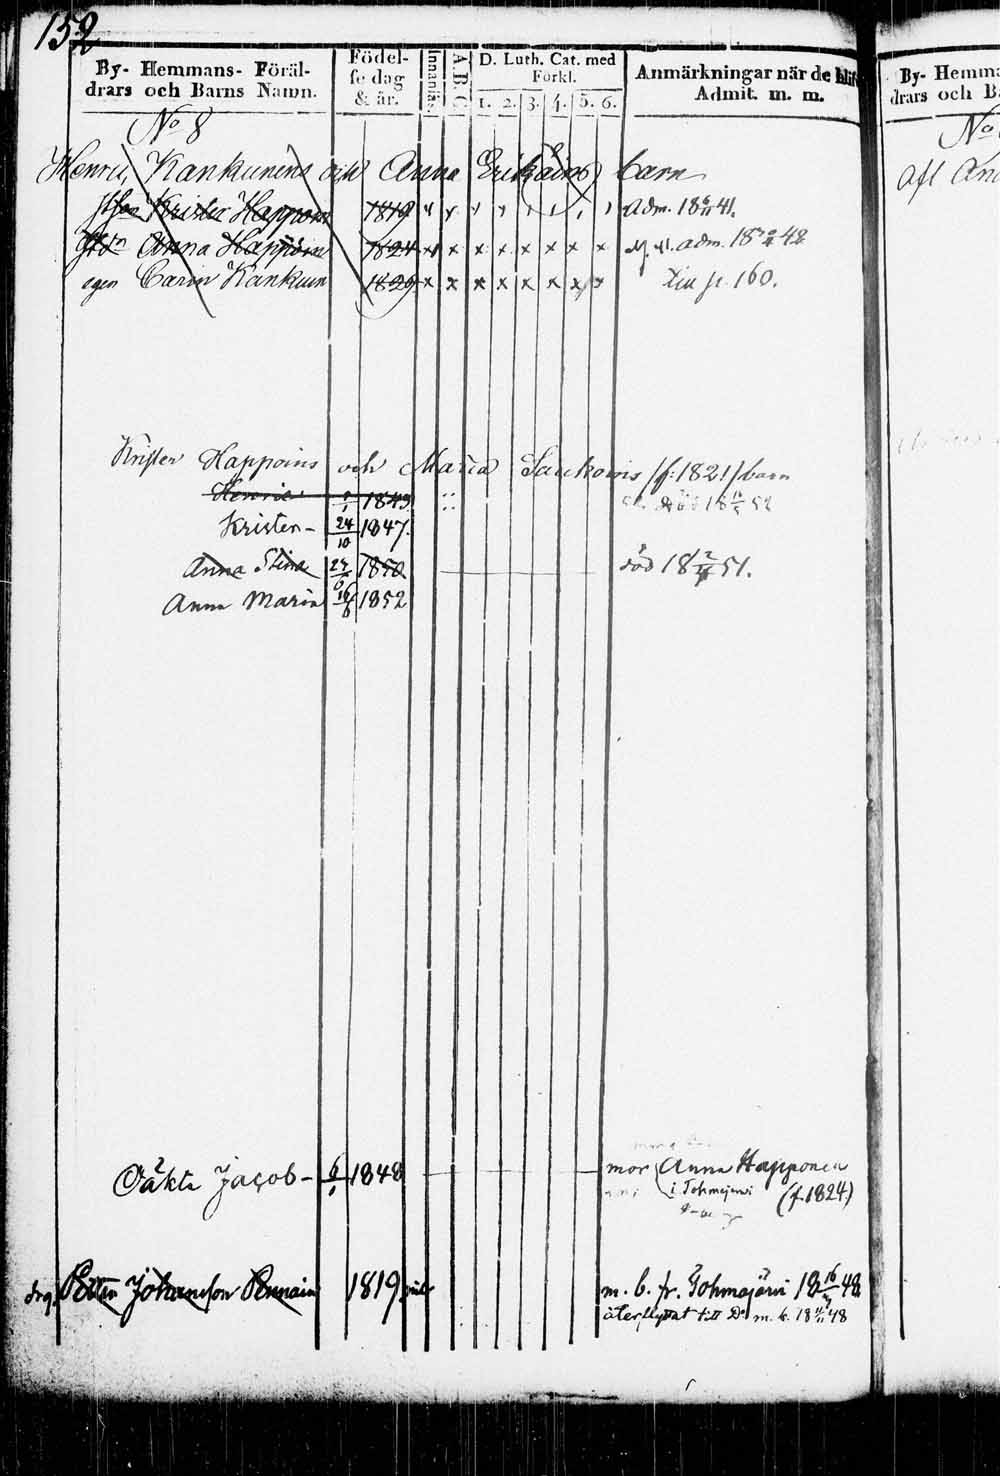 152
By- Hemmans- Föräl-
drars och Barns Namn.
Födel-
se dag
& år.
Innanläs.
A.B.C.
D. Luth. Cat. med
Förkl.
1. 2. 3. 4. 5. 6.
Anmärkningar när de blif
Admit. m. m.
No 8
Henric Kankunens och Anna Erik barn
Krister Happoin 1819 Adm. 18 41.
Anna Happoin 1824 x x x x x x x adm. 18 48
egen Carin Kankuin 1829 x x x x x x x x 160.
Krister Happoins och Maria Saukoins /f. 1821/ barn
Henric 1845 död 18 52
Krister - 24/10 1847.
Anna Stina 1850. död 18 51.
Anna Maria 16/6 1852
Oäkta Jacob - 6/1 1848 mor Anna Happonen
i Tohmajervi (f. 1824)
drg. Petter Johansson Pennain 1819 m. b. fr. Tohmajärvi 18 48
återflyttat till Do m. b. 18 48
By- Hemma
drars och B
No
Aft